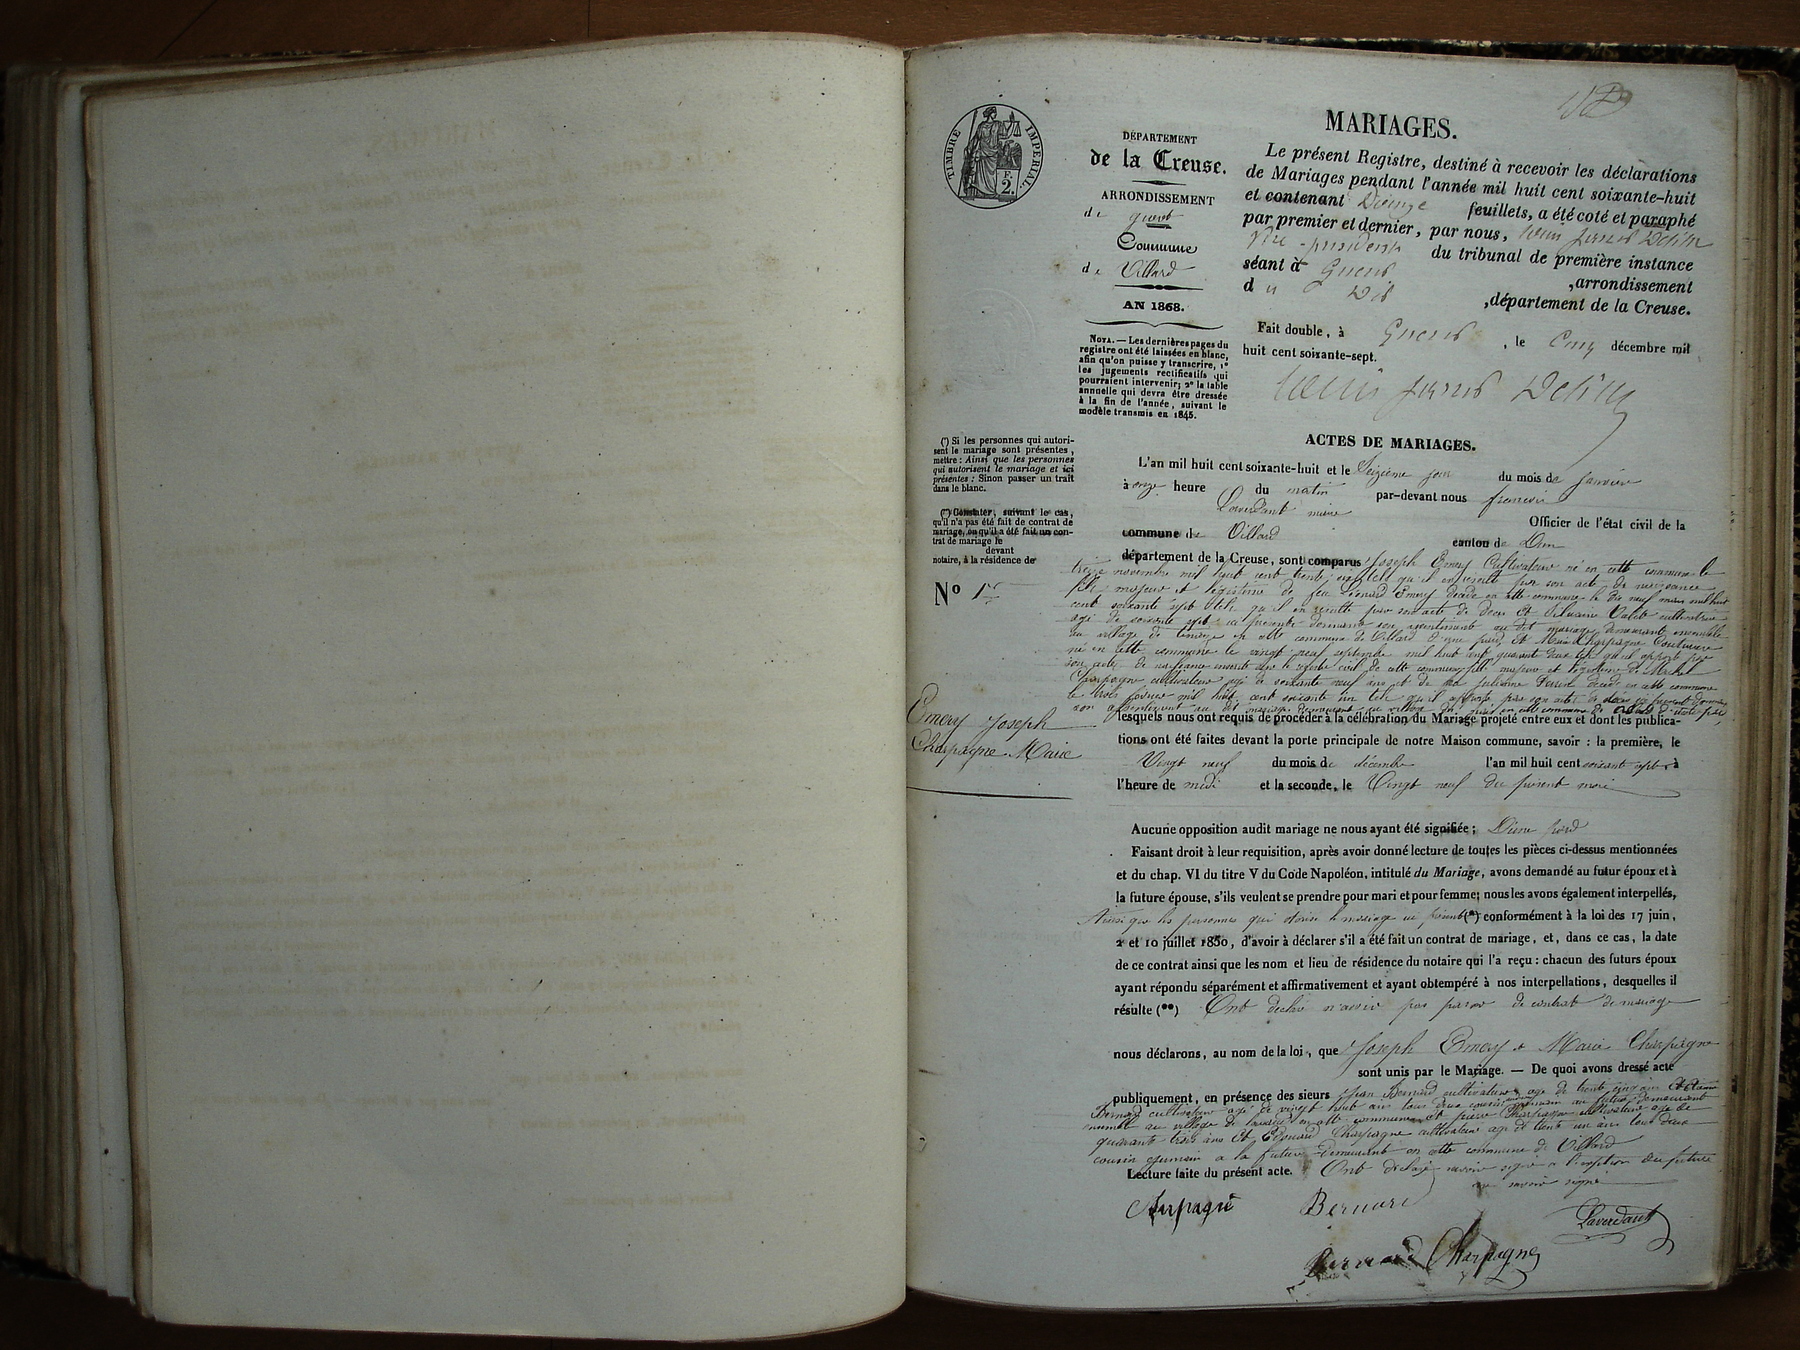 TIMBRE IMPERIAL
F.
2.
DÉPARTEMENT
de la Creuse.
ARRONDISSEMENT
de gueret
Commune
de Villard
AN 1868.
Nota. — Les dernières pages du
registre ont été laissées en blanc,
afin qu'on puisse y transcrire, 1°
les jugements rectificatifs qui
pourraient intervenir; 2° la table
annuelle qui devra être dressée
à la fin de l'année, suivant le
modèle transmis en 1845.
MARIAGES.
Le présent Registre, destiné à recevoir les déclarations
de Mariages pendant l'année mil huit cent soixante-huit
et contenant feuillets, a été coté et paraphé
par premier et dernier, par nous,
Vice-président du tribunal de première instance
séant à Gueret
d u Dit ,arrondissement
,département de la Creuse.
Fait double, à Gueret, le cinq décembre mil
huit cent soixante-sept.
(*) Si les personnes qui autori-
sent le mariage sont présentes,
mettre : Ainsi que les personnes
qui autorisent le mariage et ici
présentes : Sinon passer un trait
dans le blanc.
(**) Constater, suivant le cas,
qu'il n'a pas été fait de contrat de
mariage, ou qu'il a été fait un con-
trat de mariage le
devant
notaire, à la résidence de
No 1er
Emery Joseph
Charpagne Marie
ACTES DE MARIAGES.
L'an mil huit cent soixante-huit et le Seizième jour du mois de janvier
à onze heure du matin par-devant nous françois
Laverdant maire Officier de l'état civil de la
commune de Villard canton de Dun
département de la Creuse, sont comparus Joseph Emery Cultivateur né en cette commune le
treize novembre mil huit cent trente sept tel qu'il en résulte par son acte de naissance
fils majeur et légitime de feu Léonard Emery décédé en cette commune le dix neuf mars mil huit
cent soixante sept tel qu'il en résulte par son acte de décès Et cultivatrice
agé de soixante sept ici présente donnant son consentement au dit mariage demeurant ensemble
au village de en cette commune de Villard D'une part Et Marie Charpagne Couturière
né en cette commune le vingt neuf septembre mil huit cent quarante deux tel qu'il apport par
son acte de naissance inscrit sur le registre civil de cette commune fille majeur et légitime de Michel
Charpagne cultivateur agé de soixante neuf ans et de feu Julienne décédé en cette commune
le trois février mil huit cent soixante un tel qu'il apporte par son acte de décès ici présent donnant
son consentement au dit mariage demeurant au village en cette commune de d'autre part
lesquels nous ont requis de procéder à la célébration du Mariage projeté entre eux et dont les publica-
tions ont été faites devant la porte principale de notre Maison commune, savoir : la première, le
Vingt neuf du mois de décembre l'an mil huit cent soixante sept à
l'heure de midi et la seconde, le Vingt neuf du présent moi
Aucune opposition audit mariage ne nous ayant été signifiée; D'une part
Faisant droit à leur requisition, après avoir donné lecture de toutes les pièces ci-dessus mentionnées
et du chap. VI du titre V du Code Napoléon, intitulé du Mariage, avons demandé au futur époux et à
la future épouse, s'ils veulent se prendre pour mari et pour femme; nous les avons également interpellés,
Ainsi que les personnes qui le mariage ici présent (*) conformément à la loi des 17 juin,
2 et 10 juillet 1850, d'avoir à déclarer s'il a été fait un contrat de mariage, et, dans ce cas, la date
de ce contrat ainsi que les nom et lieu de résidence du notaire qui l'a reçu : chacun des futurs époux
ayant répondu séparément et affirmativement et ayant obtempéré à nos interpellations, desquelles il
résulte (**) Ont déclaré n'avoir pas passer de contrat de mariage
nous déclarons, au nom de la loi, que Joseph Emery et Marie Charpagne
sont unis par le Mariage. — De quoi avons dressé acte
publiquement, en présence des sieurs Jean Bernard cultivateur age de trente cinq ans Et
Bernard cultivateur agé de vingt huit ans tous deux cousin germain au futur demeurant
ensemble au village de en cette commune Et pierre Charpagne cultivateur agé de
quarante trois ans Et Edouard Charpagne cultivateur agé de trente un ans tous deux
cousin germain a la future demeurant en cette commune de Villard
Lecture faite du présent acte. Ont déclaré savoir signé a l'exeption du future
ne savoir signé
Bernard
Laverdant
Bernard Charpagne